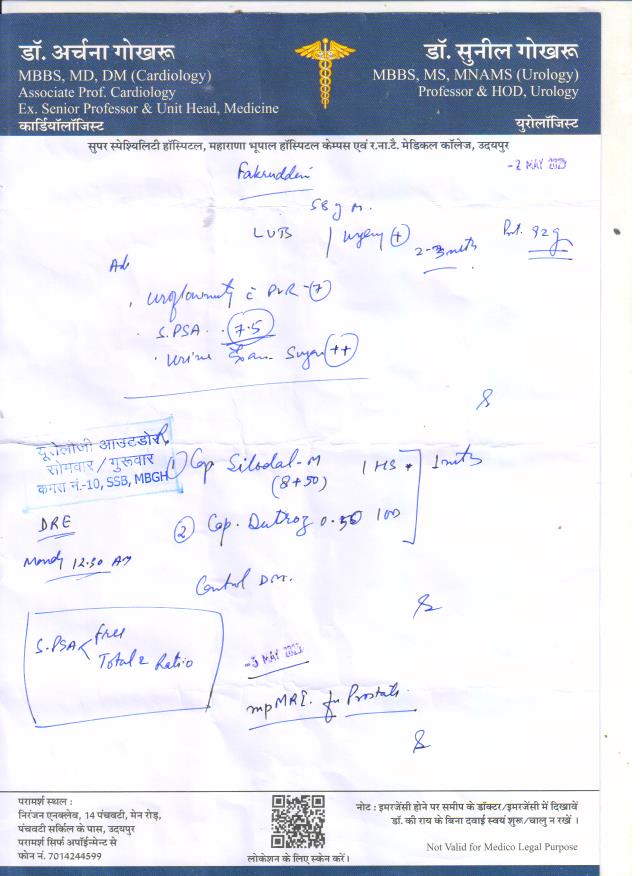 डॉ. अर्चना गोखरू
MBBS, MD, DM (Cardiology)
Associate Prof. Cardiology
Ex. Senior Professor & Unit Head, Medicine
कार्डियॉलॉजिस्ट
डॉ. सुनील गोखरू
MBBS, MS, MNAMS (Urology)
Professor & HOD, Urology
युरोलॉजिस्ट
सुपर स्पेश्यिलिटी हॉस्पिटल, महाराणा भूपाल हॉस्पिटल केम्पस एवं र.ना.टै. मेडिकल कॉलेज, उदयपुर
-2 MAY 2023
Fakruddin
LUTS urgency +
2-3 mths
92g
uroflowmetry c PVR
S.PSA 7.5
Urine Exam Sugar ++
यूरोलोजी आउटडोर
सोमवार / गुरूवार
कमरा नं.-10, SSB, MBGH
① Cap Silodal-M 1 HS 1 mth
(8+50)
② Cap. Dutroz 0.50 1 OD
DRE
12.30
Control DM.
S.PSA Free
Total & Ratio
-3 MAY 2023
mpMRI for Prostate
परामर्श स्थल :
निरंजन एनक्लेव, 14 पंचवटी, मेन रोड़,
पंचवटी सर्किल के पास, उदयपुर
परामर्श सिर्फ अपॉईन्मेन्ट से
फोन नं. 7014244599
लोकेशन के लिए स्केन करें।
नोट : इमरजेंसी होने पर समीप के डॉक्टर/इमरजेंसी में दिखावें
डॉ. की राय के बिना दवाई स्वयं शुरू/चालु न रखें ।
Not Valid for Medico Legal Purpose